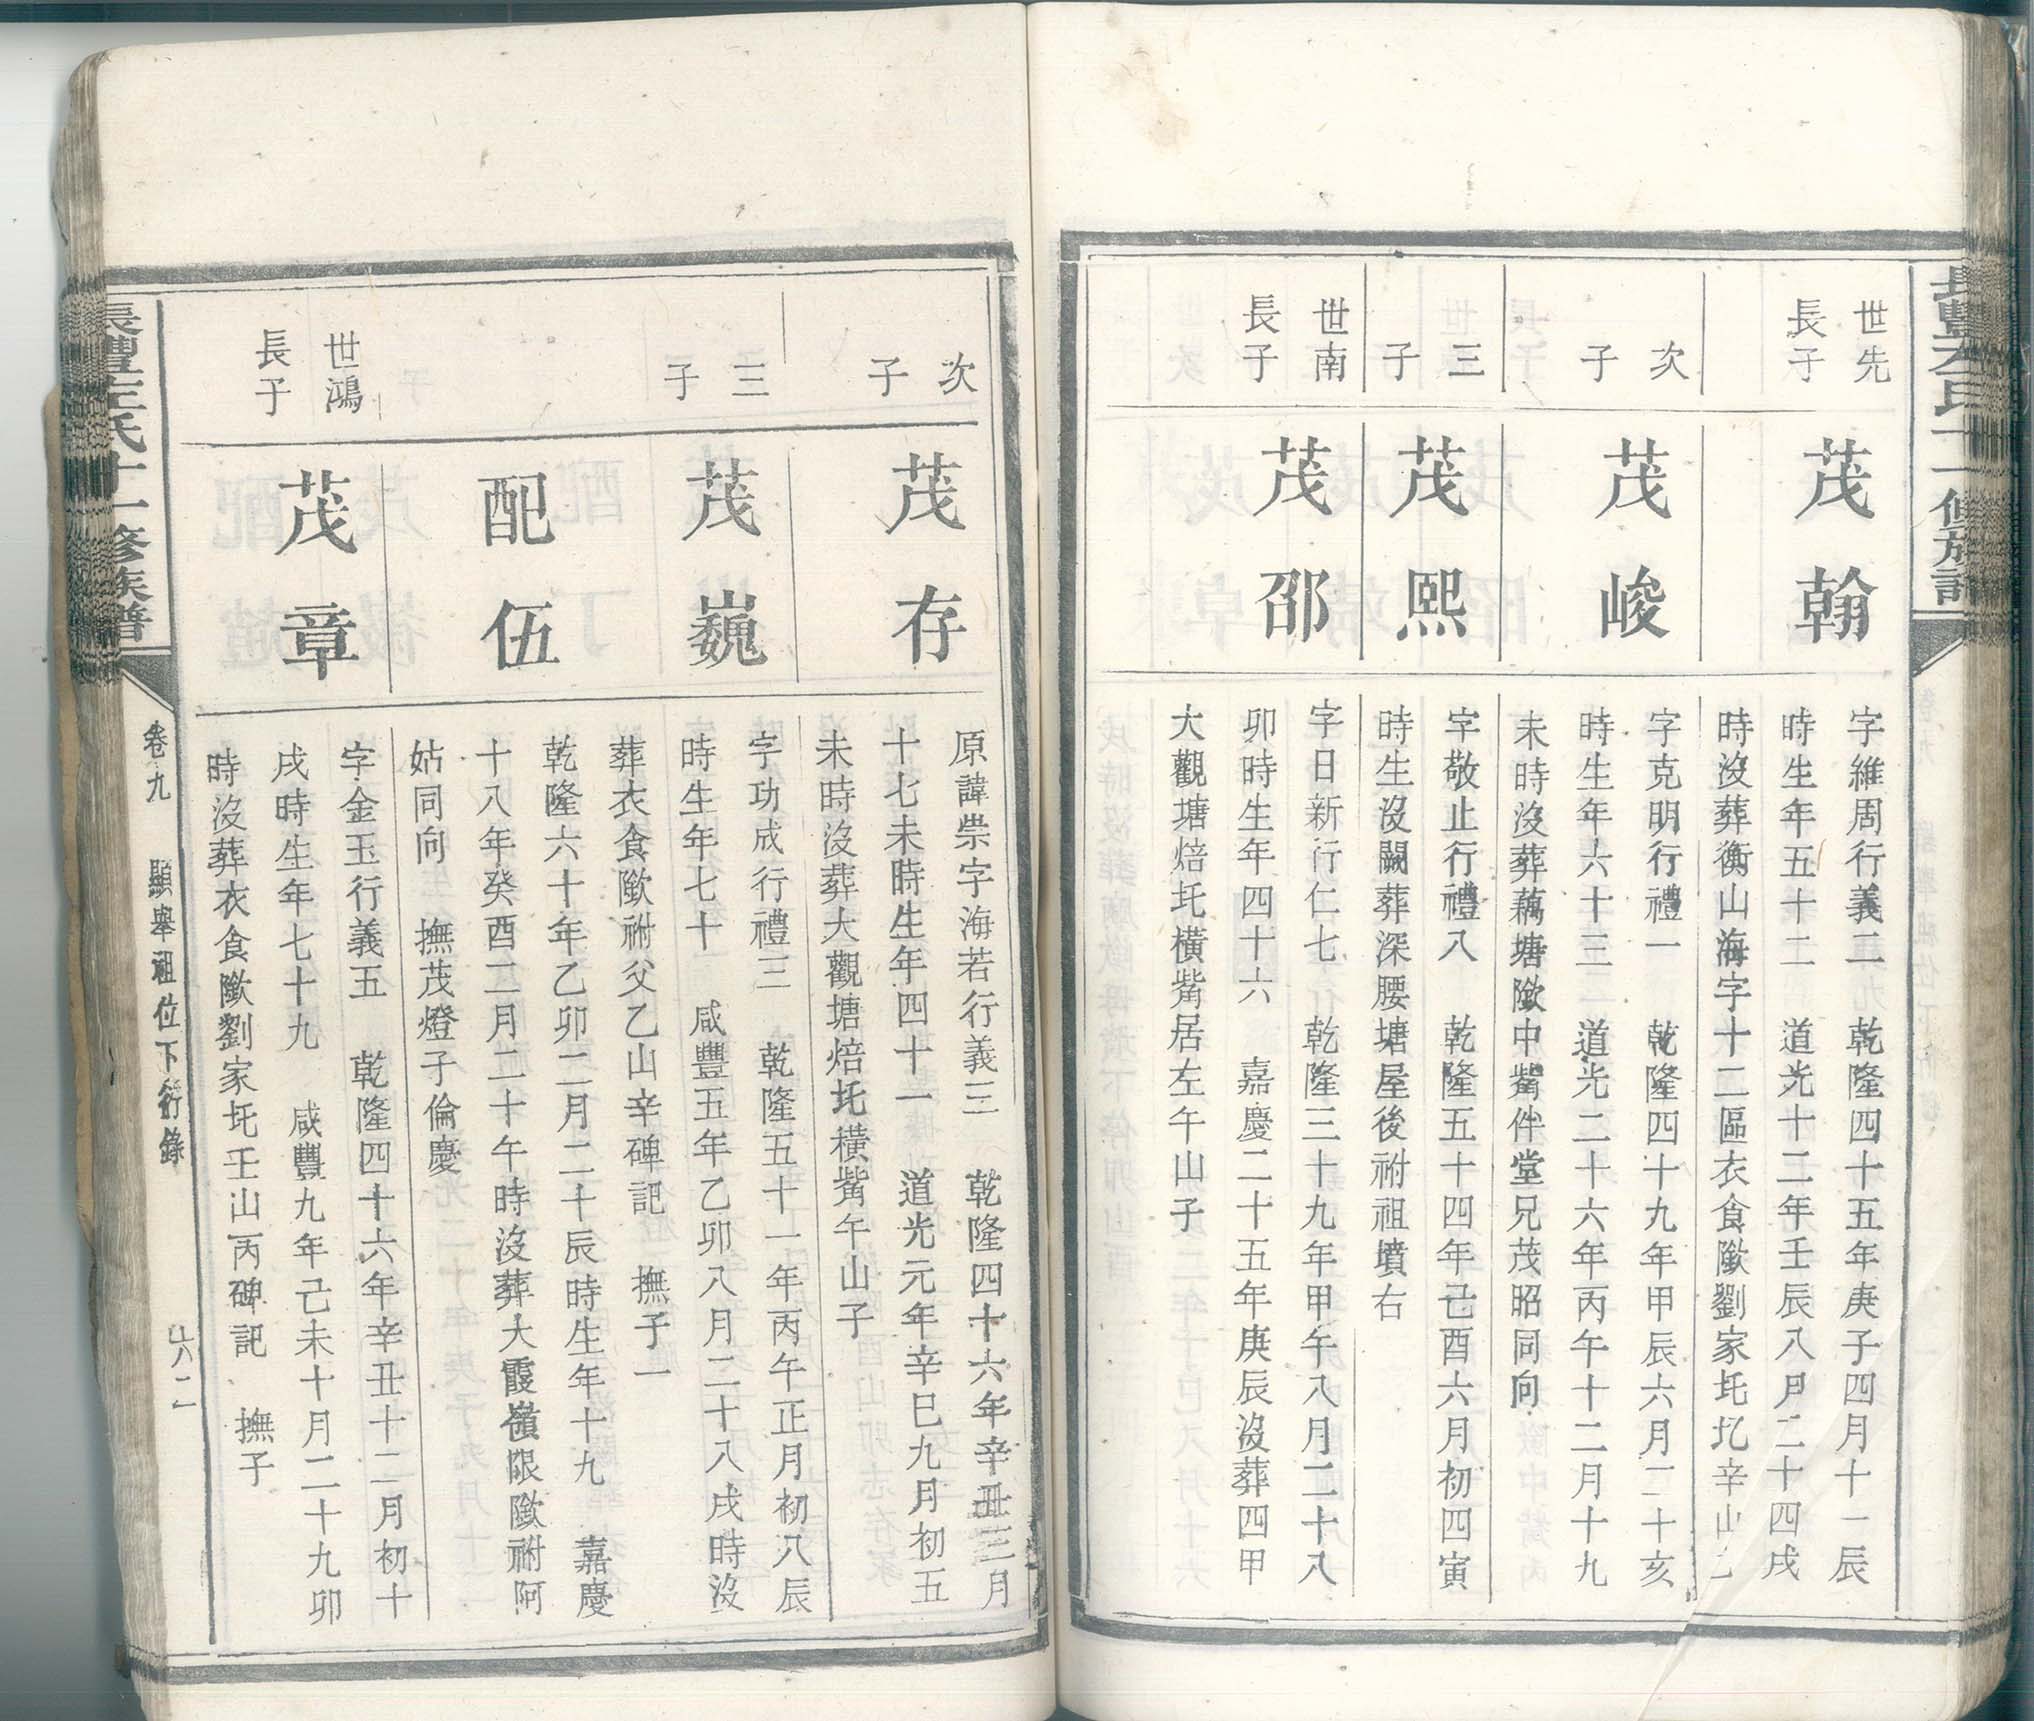 世先
長子
茂翰
字維周行義二　乾隆四十五年庚子四月十一辰
時生年五十二　道光十二年壬辰八月二十四戌
時沒葬衡山海字十二區衣食墩劉家圫圪辛山乙
次
子
茂峻
字克明行禮一　乾隆四十九年甲辰六月二十亥
時生年六十三　道光二十六年丙午十二月十九
未時沒葬藕塘墩中觜伴堂兄茂昭同向
三
子
茂熙
字敬止行禮八　乾隆五十四年己酉六月初四寅
時生沒闕葬深腰塘屋後祔祖墳右
世南
長子
茂邵
字日新行仁七　乾隆三十九年甲午八月二十八
卯時生年四十六　嘉慶二十五年庚辰沒葬四甲
大觀塘焙圫橫觜居左午山子
次
子
茂存
原諱崇字海若行義三　乾隆四十六年辛丑三月
十七未時生年四十一　道光元年辛巳九月初五
未時沒葬大觀塘焙圫橫觜午山子
三
子
茂巍
字功成行禮三　乾隆五十一年丙午正月初八辰
時生年七十　咸豐五年乙卯八月二十八戌時沒
葬衣食墩祔父乙山辛碑記　撫子一
配伍
乾隆六十年乙卯二月二十辰時生年十九　嘉慶
十八年癸酉二月二十午時沒葬大霞嶺限墩祔阿
姑同向　撫茂燈子倫慶
世鴻
長子
茂章
字金玉行義五　乾隆四十六年辛丑十二月初十
戌時生年七十九　咸豐九年己未十月二十九卯
時沒葬衣食墩劉家圫壬山丙碑記　撫子
長豐左氏十一修族譜
卷九　顯舉祖位下衍錄